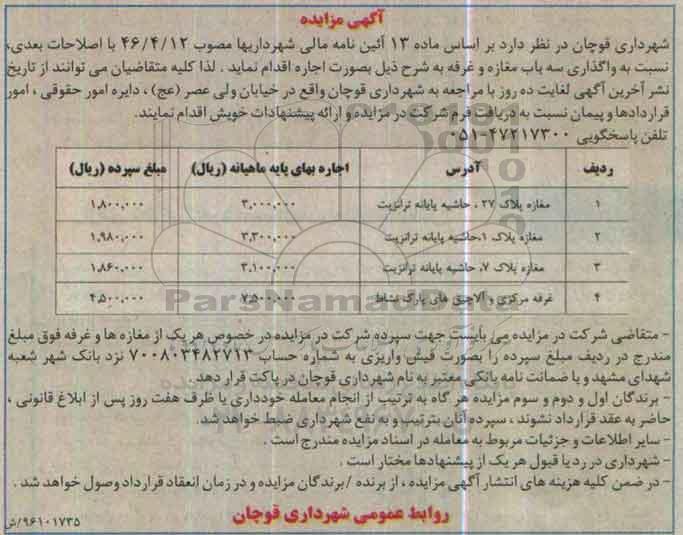 آگهی مزایده
شهرداری قوچان در نظر دارد بر اساس ماده ۱۳ آئین نامه مالی شهرداریها مصوب ۴۶/۴/۱۲ با اصلاحات بعدی،
نسبت به واگذاری سه باب مغازه و غرفه به شرح ذیل بصورت اجاره اقدام نماید . لذا کلیه متقاضیان می توانند از تاریخ
نشر آخرین آگهی لغایت ده روز با مراجعه به شهرداری قوچان واقع در خیابان ولی عصر (عج) ، دایره امور حقوقی ، امور
قراردادها و پیمان نسبت به دریافت فرم شرکت در مزایده و ارائه پیشنهادات خویش اقدام نمایند.
تلفن پاسخگویی ۴۷۲۱۷۳۰۰-۰۵۱
ردیف آدرس اجاره بهای پایه ماهیانه (ریال) مبلغ سپرده (ریال)
۱ مغازه پلاک ۲۷ ، حاشیه پایانه ترانزیت ۳,۰۰۰,۰۰۰ ۱,۸۰۰,۰۰۰
۲ مغازه پلاک ۱، حاشیه پایانه ترانزیت ۳,۳۰۰,۰۰۰ ۱,۹۸۰,۰۰۰
۳ مغازه پلاک ۷، حاشیه پایانه ترانزیت ۳,۱۰۰,۰۰۰ ۱,۸۶۰,۰۰۰
۴ غرفه مرکزی و آلاچیق های پارک نشاط ۷,۵۰۰,۰۰۰ ۴,۵۰۰,۰۰۰
ParsNamadData
- متقاضی شرکت در مزایده می بایست جهت سپرده شرکت در مزایده در خصوص هر یک از مغازه ها و غرفه فوق مبلغ
مندرج در ردیف مبلغ سپرده را بصورت فیش واریزی به شماره حساب ۷۰۰۸۰۳۴۸۲۷۱۳ نزد بانک شهر شعبه
شهدای مشهد و یا ضمانت نامه بانکی معتبر به نام شهرداری قوچان در پاکت قرار دهد.
- برندگان اول و دوم و سوم مزایده هر گاه به ترتیب از انجام معامله خودداری یا ظرف هفت روز پس از ابلاغ قانونی ،
حاضر به عقد قرارداد نشوند ، سپرده آنان بترتیب و به نفع شهرداری ضبط خواهد شد.
- سایر اطلاعات و جزئیات مربوط به معامله در اسناد مزایده مندرج است .
- شهرداری در رد یا قبول هر یک از پیشنهادها مختار است .
- در ضمن کلیه هزینه های انتشار آگهی مزایده ، از برنده / برندگان مزایده و در زمان انعقاد قرارداد وصول خواهد شد .
روابط عمومی شهرداری قوچان
۹۶۱۰۱۷۳۵/ش